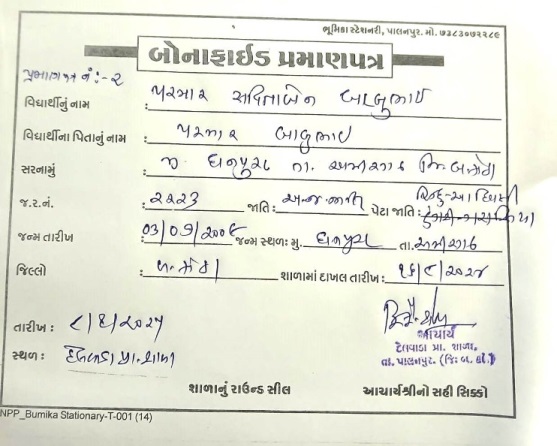 ભૂમિકા સ્ટેશનરી, પાલનપુર. મો. ૭૩૮૩૦૭૨૨૮૯
બોનાફાઈડ પ્રમાણપત્ર
નં:-૨
વિદ્યાર્થીનું નામ : પરમાર સવિતાબેન બાબુભાઈ
વિદ્યાર્થીના પિતાનું નામ : પરમાર બાબુભાઈ
સરનામું : મુ. ધનપુરા તા. અમીરગઢ જિ. બ.કાંઠા
જ.ર.નં. : ૨૨૨૩ જાતિ : અનુ.જનજાતિ પેટા જાતિ : હિન્દુ-આદિવાસી
જન્મ તારીખ ૦૩/૦૭/૨૦૦૬ જન્મ સ્થળ: મુ. ધનપુરા તા. અમીરગઢ
જિલ્લો : બ.કાંઠા શાળામાં દાખલ તારીખ :
તારીખ :
સ્થળ : પ્રા.શાળા
આચાર્ય
દેલવાડા પ્રા. શાળા.
તા. પાલનપુર. (જિ: બ. કાં.)
શાળાનું રાઉન્ડ સીલ આચાર્યશ્રીનો સહી સિક્કો
NPP_Bumika Stationary-T-001 (14)